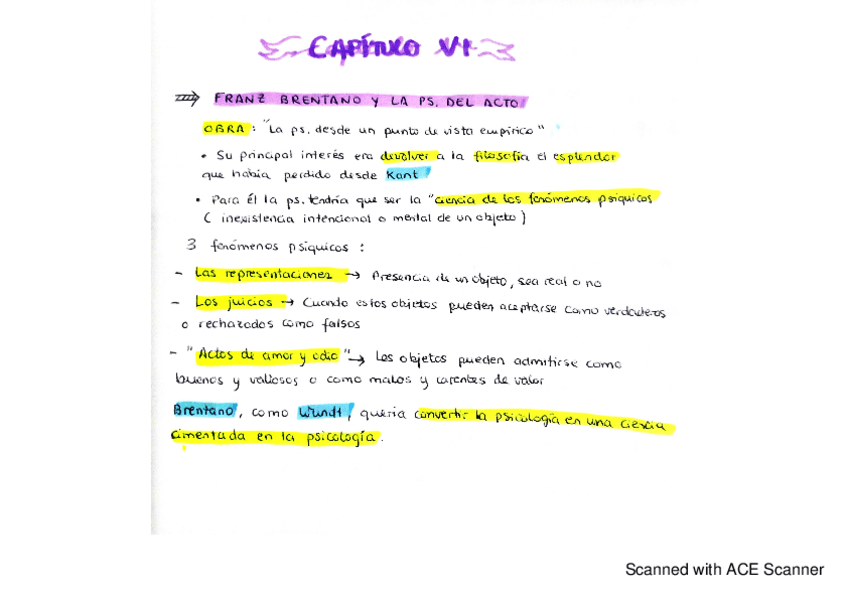 CAPÍTULO VI
FRANZ BRENTANO Y LA PS. DEL ACTO
OBRA: "La ps. desde un punto de vista empírico"
• Su principal interés era devolver a la filosofía el esplendor
que había perdido desde Kant
• Para él la ps. tendría que ser la "ciencia de los fenómenos psíquicos
( inexistencia intencional o mental de un objeto )
3 fenómenos psíquicos :
- Las representaciones → Presencia de un objeto, sea real o no
- Los juicios → Cuando estos objetos pueden aceptarse como verdaderos
o rechazados como falsos
- "Actos de amor y odio" → Los objetos pueden admitirse como
buenos y valiosos o como malos y carentes de valor
Brentano, como Wundt, quería convertir la psicología en una ciencia
cimentada en la psicología.
Scanned with ACE Scanner